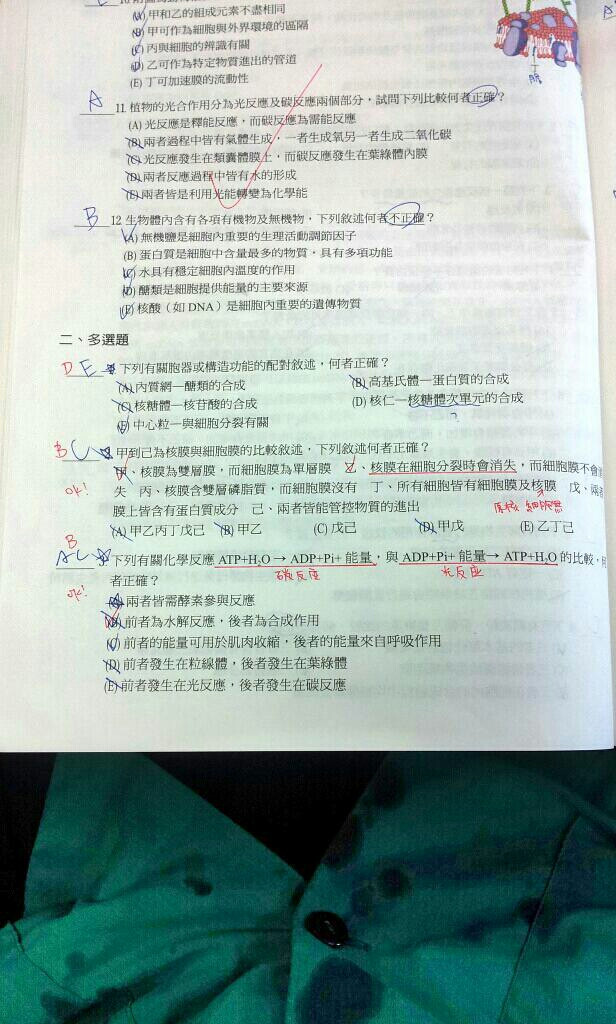 (A) 甲和乙的組成元素不盡相同
(B) 甲可作為細胞與外界環境的區隔
(C) 丙與細胞的辨識有關
(D) 乙可作為特定物質進出的管道
(E) 丁可加速膜的流動性
A 11 植物的光合作用分為光反應及碳反應兩個部分，試問下列比較何者正確？
(A) 光反應是釋能反應，而碳反應為需能反應
(B) 兩者過程中皆有氣體生成，一者生成氧另一者生成二氧化碳
(C) 光反應發生在類囊體膜上，而碳反應發生在葉綠體內膜
(D) 兩者反應過程中皆有水的形成
(E) 兩者皆是利用光能轉變為化學能
B 12 生物體內含有各項有機物及無機物，下列敘述何者不正確？
(A) 無機鹽是細胞內重要的生理活動調節因子
(B) 蛋白質是細胞中含量最多的物質，具有多項功能
(C) 水具有穩定細胞內溫度的作用
(D) 醣類是細胞提供能量的主要來源
(E) 核酸（如 DNA）是細胞內重要的遺傳物質
二、多選題
D E 下列有關胞器或構造功能的配對敘述，何者正確？
(A) 內質網—醣類的合成 (B) 高基氏體—蛋白質的合成
(C) 核糖體—核苷酸的合成 (D) 核仁—核糖體次單元的合成
(E) 中心粒—與細胞分裂有關 ?
B C 甲到己為核膜與細胞膜的比較敘述，下列敘述何者正確？
甲、核膜為雙層膜，而細胞膜為單層膜 乙、核膜在細胞分裂時會消失，而細胞膜不會消
ok! 失 丙、核膜含雙層磷脂質，而細胞膜沒有 丁、所有細胞皆有細胞膜及核膜 戊、兩者
膜上皆含有蛋白質成分 己、兩者皆能管控物質的進出 原核細胞無
(A) 甲乙丙丁戊己 (B) 甲乙 (C) 戊己 (D) 甲戊 (E) 乙丁己
B
A C 下列有關化學反應 ATP+H₂O → ADP+Pi+ 能量，與 ADP+Pi+ 能量→ ATP+H₂O 的比較，
碳反应 光反应
ok! 者正確？
(A) 兩者皆需酵素參與反應
(B) 前者為水解反應，後者為合成作用
(C) 前者的能量可用於肌肉收縮，後者的能量來自呼吸作用
(D) 前者發生在粒線體，後者發生在葉綠體
(E) 前者發生在光反應，後者發生在碳反應